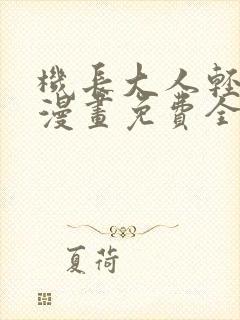 機長大人輕
漫畫免費全
夏荷